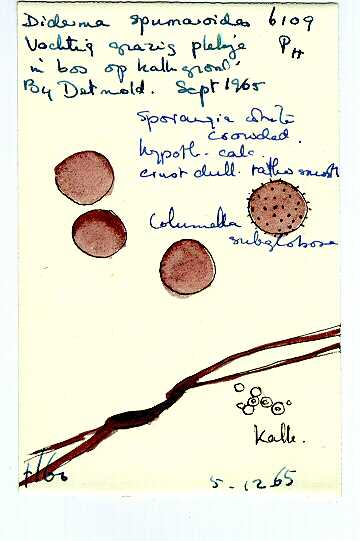 Diderma spumarioides 6109
Vochtig grazig plekje PH
in bos op kalkgrond
By Detmold. Sept 1965
Sporangia white
crowded.
hypoth. calc.
crust dull. rather smooth
Columella
subglobose
Kalk.
5-12 65